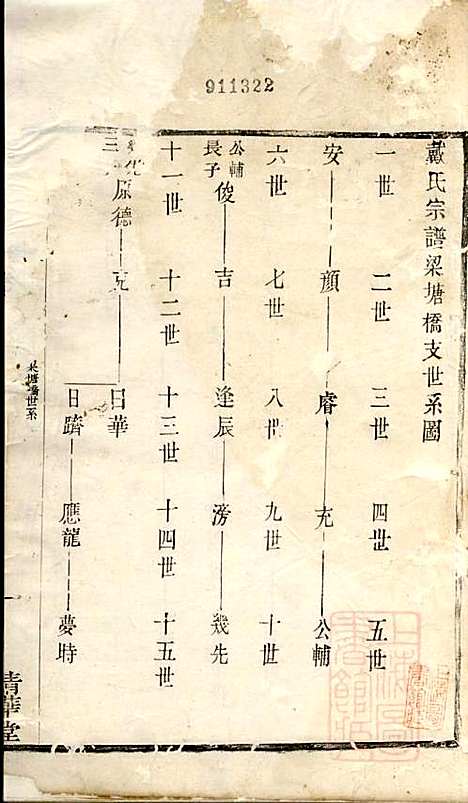 911322
戴氏宗譜梁塘橋支世系圖
一世 二世 三世 四世 五世
安 顔 睿 充 公輔
六世 七世 八世 九世 十世
公輔長子 俊 吉 逢辰 滂 幾先
十一世 十二世 十三世 十四世 十五世
原德 克 日華
日躋 應龍 夢時
梁塘橋世系
清華堂